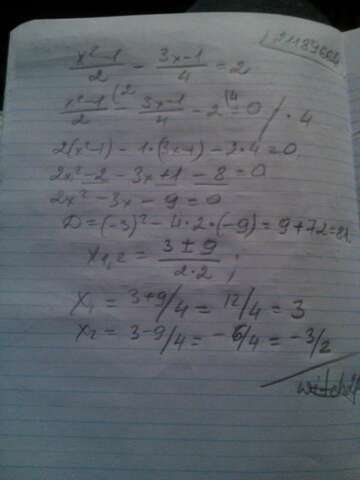 21189664
x²-1/2 - 3x-1/4 = 2
x²-1/2 (2 - 3x-1/4 - 2 (4 = 0 / · 4
2(x²-1) - 1·(3x-1) - 2·4 = 0
2x²-2 - 3x+1 - 8 = 0
2x² - 3x - 9 = 0
D = (-3)² - 4·2·(-9) = 9+72=81
x1,2 = 3±9/2·2 ;
x1 = 3+9/4 = 12/4 = 3
x2 = 3-9/4 = -6/4 = -3/2